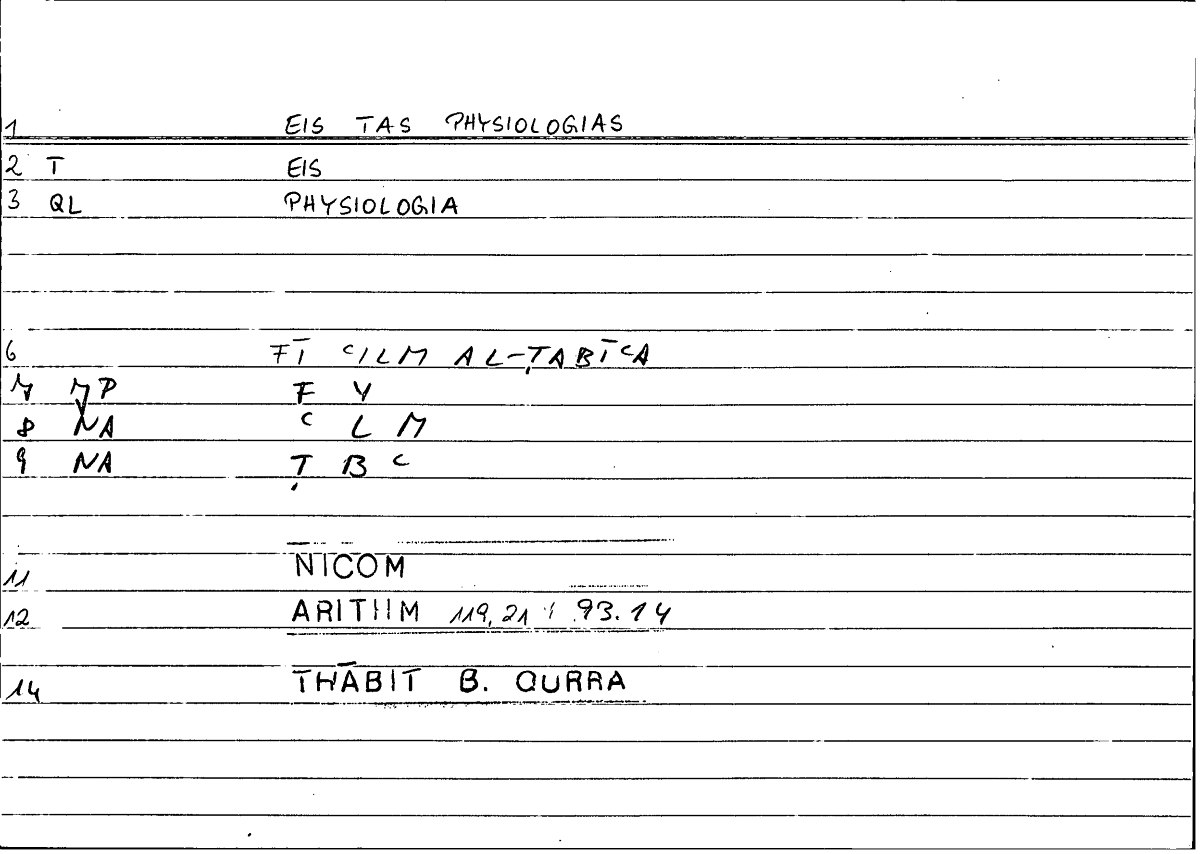 1 EIS TAS PHYSIOLOGIAS
2 T EIS
3 QL PHYSIOLOGIA
6 FĪ ᶜILM AL-ṬABĪᶜA
7 NP F Y
8 NA ᶜ L M
9 NA Ṭ B ᶜ
11 NICOM
12 ARITHM 119,21 : 93.14
14 THĀBIT B. QURRA